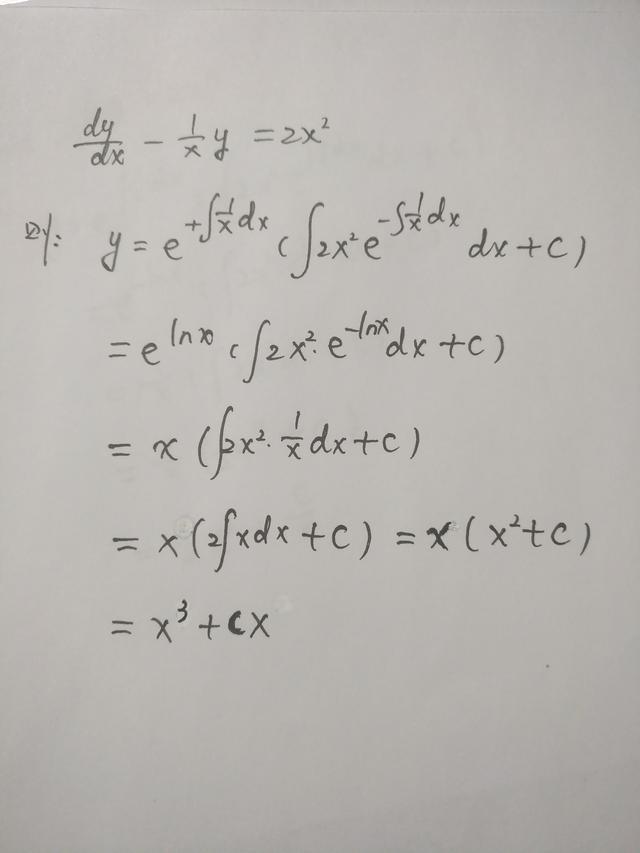 dy/dx - 1/x y = 2x²
则: y = e^{+∫1/x dx} (∫2x² e^{-∫1/x dx} dx + C)
= e^{lnx} (∫2x²· e^{-lnx} dx + C)
= x (∫2x²· 1/x dx + C)
= x (2∫xdx + C) = x (x² + C)
= x³ + Cx